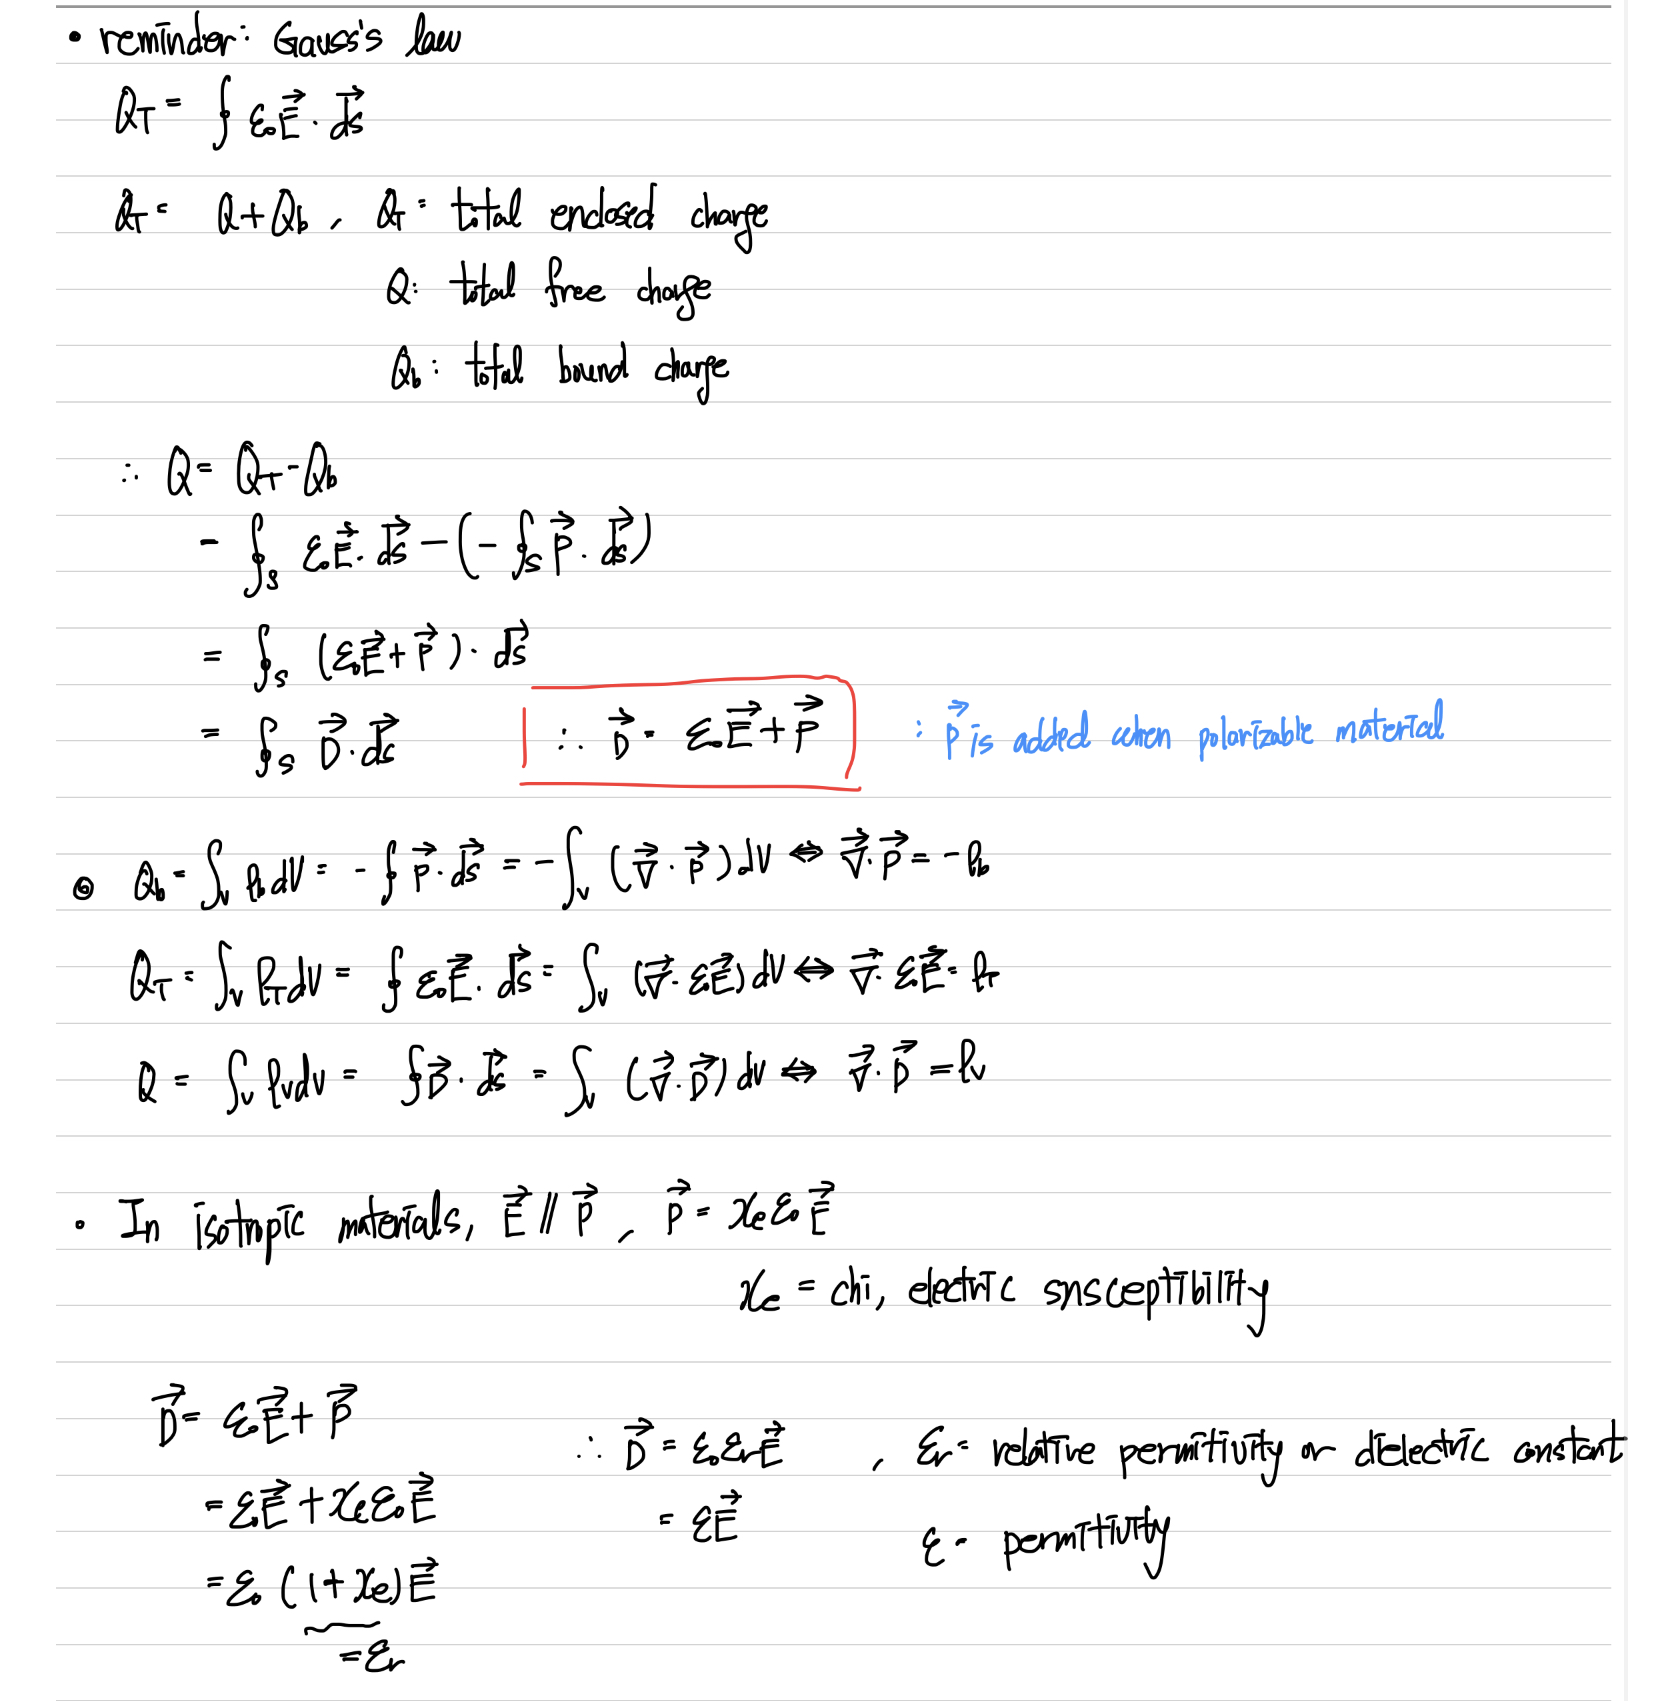 • reminder: Gauss's law
Q_T = ∮ ε₀E⃗ · ds⃗
Q_T = Q + Q_b , Q_T = total enclosed charge
Q: total free charge
Q_b: total bound charge
∴ Q = Q_T - Q_b
= ∮_S ε₀E⃗ · ds⃗ - (- ∮_S P⃗ · ds⃗)
= ∮_S (ε₀E⃗ + P⃗) · ds⃗
= ∮_S D⃗ · ds⃗ ∴ D⃗ = ε₀E⃗ + P⃗ : P⃗ is added when polarizable material
⊙ Q_b = ∫_v ρ_b dV = - ∮ P⃗ · ds⃗ = - ∫_v (∇⃗ · P⃗) dV ⇔ ∇⃗ · P⃗ = - ρ_b
Q_T = ∫_v ρ_T dV = ∮ ε₀E⃗ · ds⃗ = ∫_v (∇⃗ · ε₀E⃗) dV ⇔ ∇⃗ · ε₀E⃗ = ρ_T
Q = ∫_v ρ_v dv = ∮ D⃗ · ds⃗ = ∫_v (∇⃗ · D⃗) dV ⇔ ∇⃗ · D⃗ = ρ_v
• In isotropic materials, E⃗ // P⃗ , P⃗ = χ_e ε₀ E⃗
χ_e = chi, electric snsceptibility
D⃗ = ε₀E⃗ + P⃗
= ε₀E⃗ + χ_e ε₀ E⃗
= ε₀ (1 + χ_e) E⃗
= ε_r
∴ D⃗ = ε₀ε_r E⃗ , ε_r = relative permitivity or dielectric constant
= εE⃗ ε = permitivity